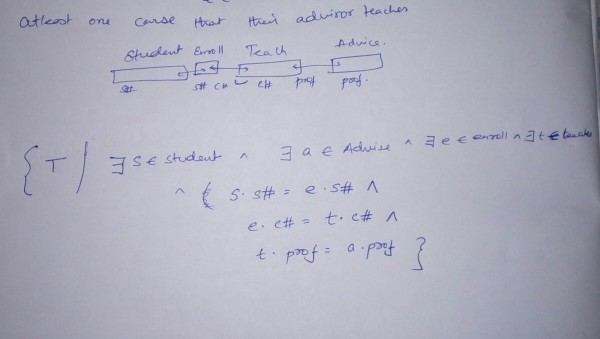 atleast one course that their advisor teaches
Student Enroll Teach Advice.
s# s# c# c# prof prof.
{ T | ∃ s ∈ student ∧ ∃ a ∈ Advise ∧ ∃ e ∈ enroll ∧ ∃ t ∈ teaches
∧ ( s. s# = e. s# ∧
e. c# = t. c# ∧
t. prof = a. prof }